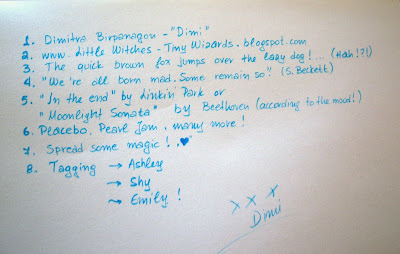 1. Dimitra Birpanagou - "Dimi"
2. www.Little Witches-Tiny Wizards.blogspot.com
3. The quick brown fox jumps over the lazy dog!... (Hah!?!)
4. "We're all born mad. Some remain so." (S. Beckett)
5. "In the end" by Linkin Park or
"Moonlight Sonata" by Beethoven (according to the mood!)
6. Placebo, Pearl Jam, many more!
7. Spread some magic! . ♥
8. Tagging → Ashley
→ Shy
→ Emily !
x x x
Dimi